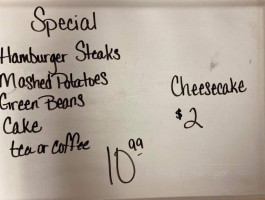 Special
Hamburger Steaks
Mashed Potatoes
Green Beans
Cake
tea or coffee
10.99
Cheesecake
$2